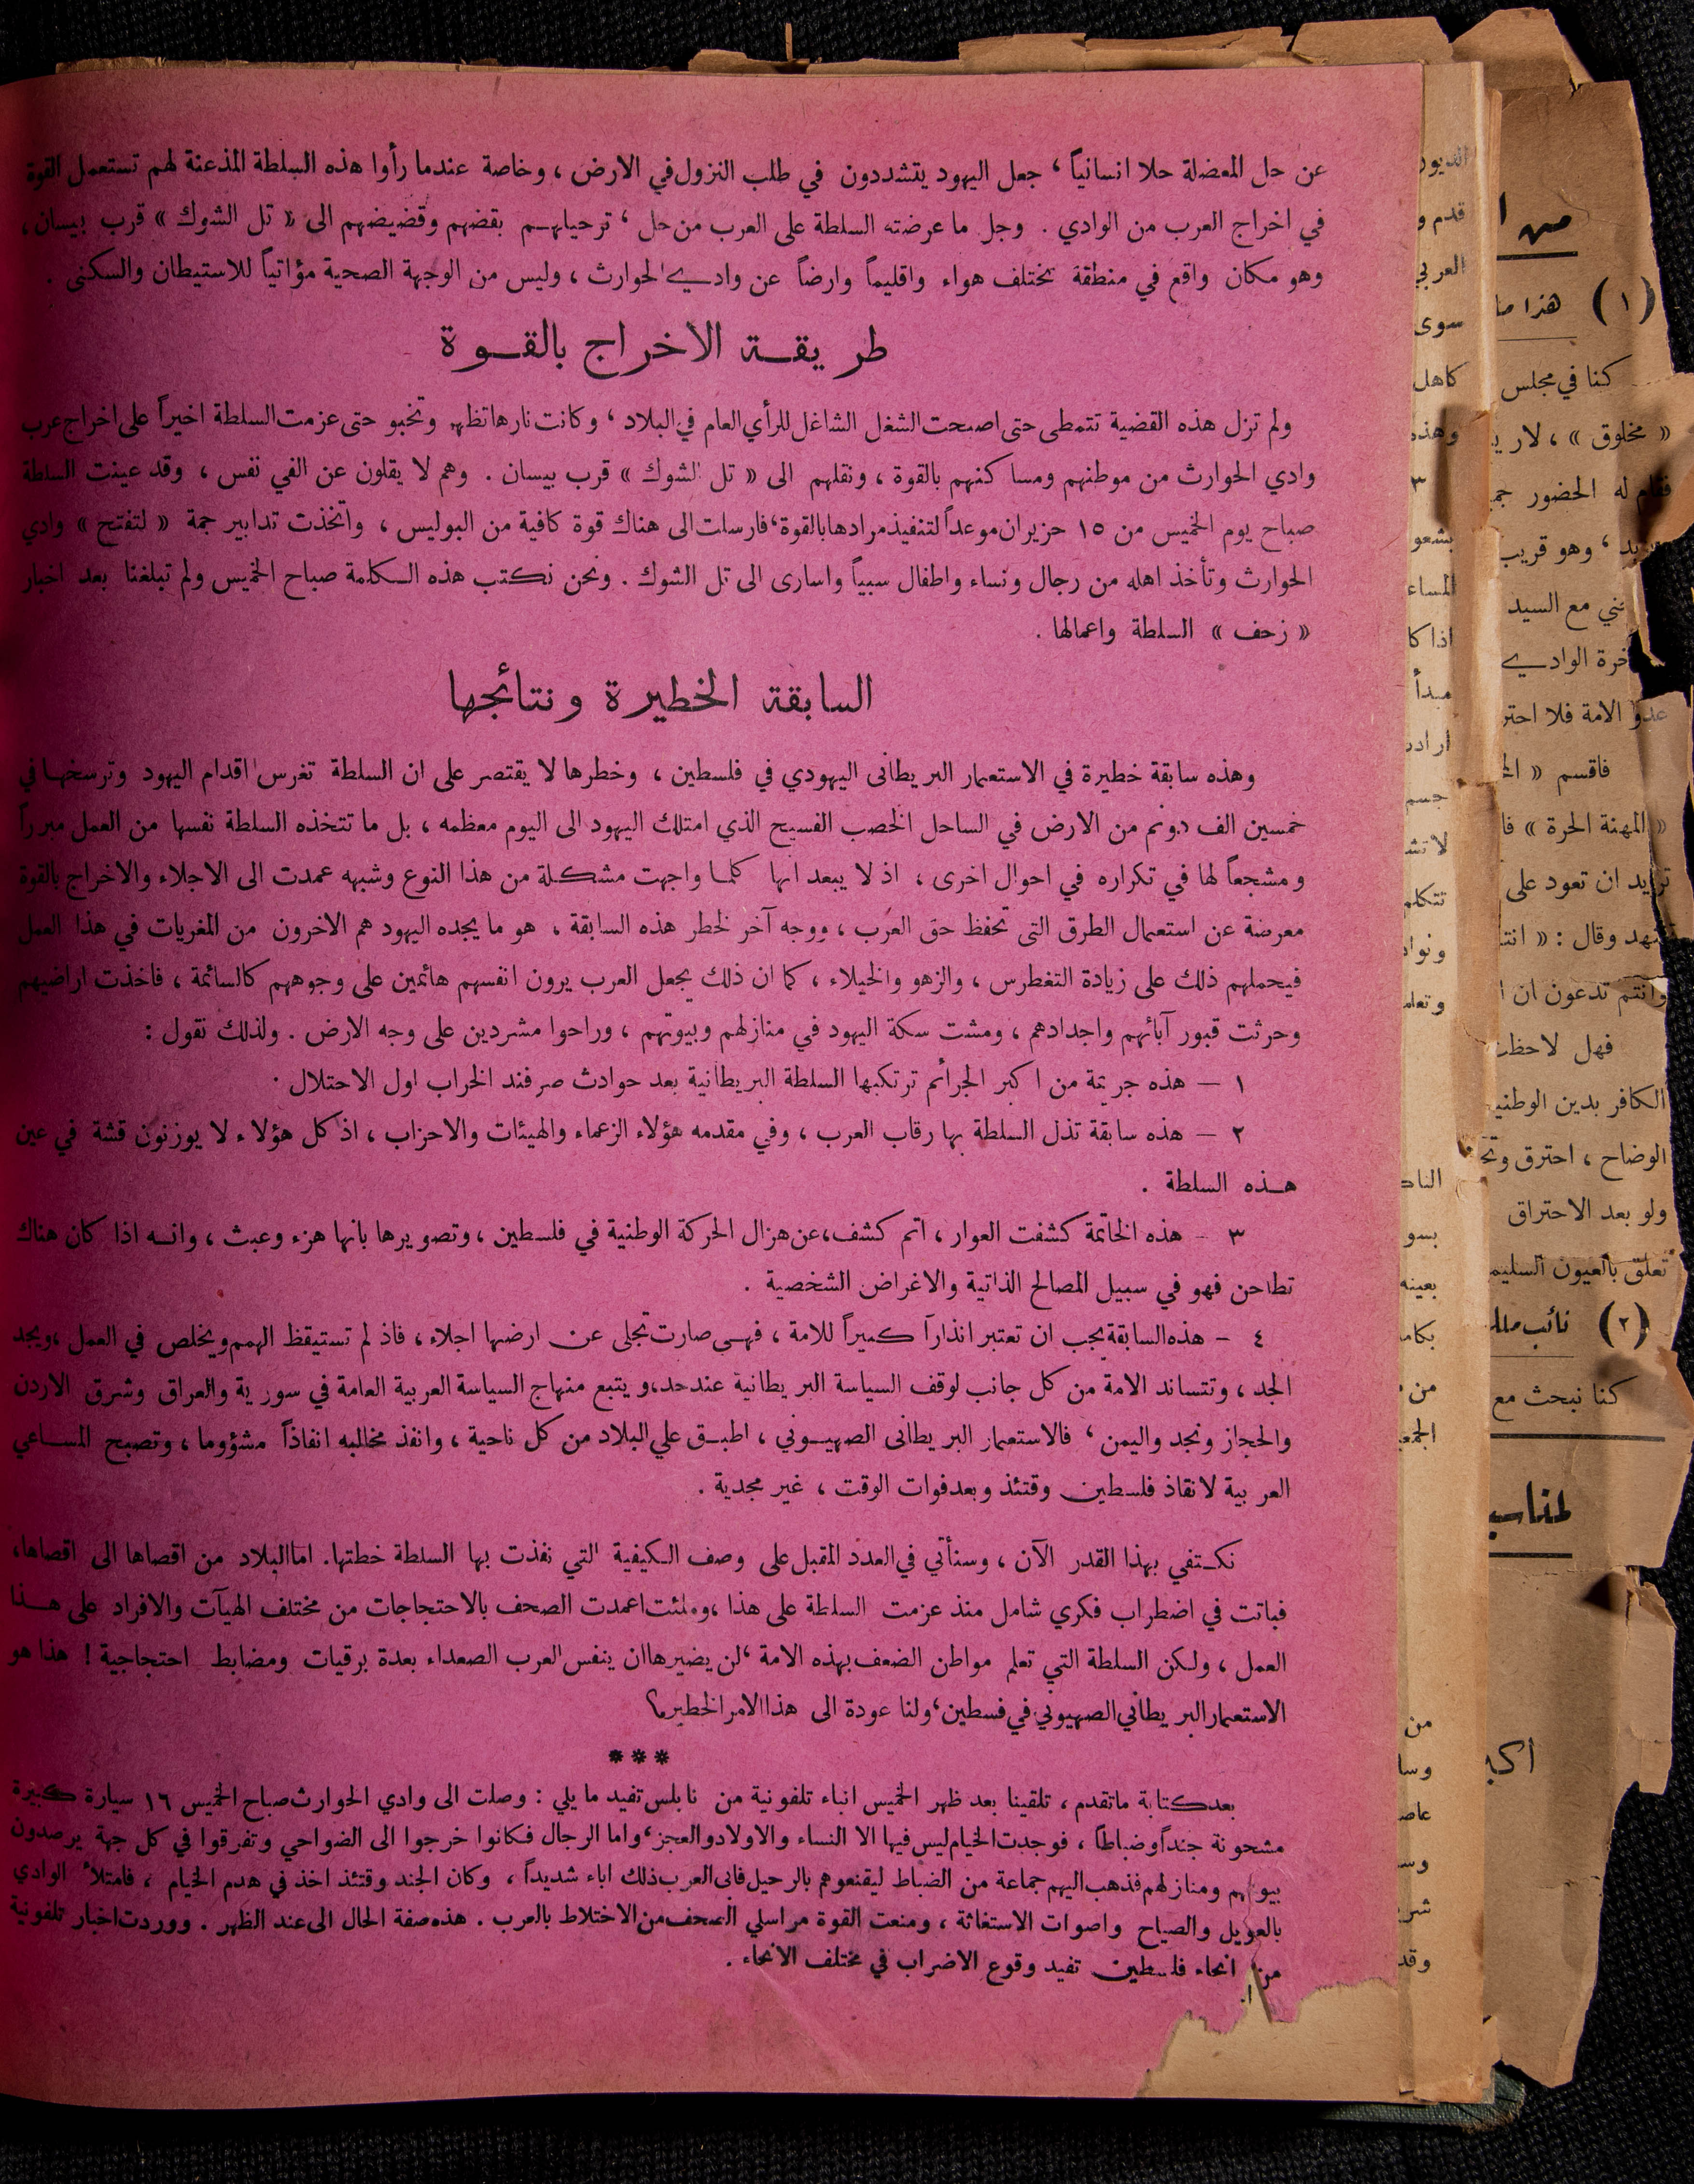 عن حل المعضلة حلا انسانياً ، جعل اليهود يتشددون في طلب النزول في الارض ، وخاصة عندما رأوا هذه السلطة المذعنة لهم تستعمل القوة
في اخراج العرب من الوادي . وجل ما عرضته السلطة على العرب من حل ، ترحيلهم بقضهم وقضيضهم الى « تل الشوك » قرب بيسان ،
وهو مكان واقع في منطقة تختلف هواء واقليماً وارضاً عن وادي الحوارث ، وليس من الوجهة الصحية مؤاتياً للاستيطان والسكنى .
طريقة الاخراج بالقوة
ولم تزل هذه القضية تتمطى حتى اصبحت الشغل الشاغل للرأي العام في البلاد ، وكانت نارها تظهر وتخبو حتى عزمت السلطة اخيراً على اخراج عرب
وادي الحوارث من موطنهم ومساكنهم بالقوة ، ونقلهم الى « تل الشوك » قرب بيسان . وهم لا يقلون عن الفي نفس ، وقد عينت السلطة
صباح يوم الخميس من ١٥ حزيران موعداً لتنفيذ مرادها بالقوة ، فارسلت الى هناك قوة كافية من البوليس ، واتخذت تدابير جمة « لتفتح » وادي
الحوارث وتأخذ اهله من رجال ونساء واطفال سبياً واسارى الى تل الشوك . ونحن نكتب هذه الكلمة صباح الخميس ولم تبلغنا بعد اخبار
« زحف » السلطة واعمالها .
السابقة الخطيرة ونتائجها
وهذه سابقة خطيرة في الاستعمار البريطاني اليهودي في فلسطين ، وخطرها لا يقتصر على ان السلطة تغرس اقدام اليهود وترسخها في
خمسين الف دونم من الارض في الساحل الخصب الفسيح الذي امتلك اليهود الى اليوم معظمه ، بل ما تتخذه السلطة نفسها من العمل مبرراً
ومشجعاً لها في تكراره في احوال اخرى ، اذ لا يبعد انها كلما واجهت مشكلة من هذا النوع وشبهه عمدت الى الاجلاء والاخراج بالقوة
معرضة عن استعمال الطرق التي تحفظ حق العرب ، ووجه آخر لخطر هذه السابقة ، هو ما يجده اليهود هم الاخرون من المغريات في هذا العمل
فيحملهم ذلك على زيادة التغطرس ، والزهو والخيلاء ، كما ان ذلك يجعل العرب يرون انفسهم هائمين على وجوههم كالسائمة ، فاخذت اراضيهم
وحرثت قبور آبائهم واجدادهم ، ومشت سكة اليهود في منازلهم وبيوتهم ، وراحوا مشردين على وجه الارض . ولذلك نقول :
١ – هذه جريمة من اكبر الجرائم ترتكبها السلطة البريطانية بعد حوادث صرفند الخراب اول الاحتلال .
٢ – هذه سابقة تذل السلطة بها رقاب العرب ، وفي مقدمه هؤلاء الزعماء والهيئات والاحزاب ، اذ كل هؤلاء لا يوزنون قشة في عين
هذه السلطة .
٣ – هذه الخاتمة كشفت العوار ، اتم كشف ، عن هزال الحركة الوطنية في فلسطين ، وتصويرها بانها هزء وعبث ، وانه اذا كان هناك
تطاحن فهو في سبيل المصالح الذاتية والاغراض الشخصية .
٤ – هذه السابقة يجب ان تعتبر انذاراً كبيراً للامة ، فهي صارت تجلى عن ارضها اجلاء ، فاذ لم تستيقظ الهمم ويخلص في العمل ، ويجد
الجد ، وتتساند الامة من كل جانب لوقف السياسة البريطانية عند حد ، ويتبع منهاج السياسة العربية العامة في سورية والعراق وشرق الاردن
والحجاز ونجد واليمن ، فالاستعمار البريطاني الصهيوني ، اطبق علي البلاد من كل ناحية ، وانفذ مخالبه انفاذاً مشؤوما ، وتصبح المساعي
العربية لانقاذ فلسطين وقتئذ وبعد فوات الوقت ، غير مجدية .
نكتفي بهذا القدر الآن ، وسنأتي في العدد المقبل على وصف الكيفية التي نفذت بها السلطة خطتها. اما البلاد من اقصاها الى اقصاها،
فباتت في اضطراب فكري شامل منذ عزمت السلطة على هذا ، وملئت اعمدت الصحف بالاحتجاجات من مختلف الهيآت والافراد على هذا
العمل ، ولكن السلطة التي تعلم مواطن الضعف بهذه الامة ، لن يضيرها ان ينفس العرب الصعداء بعدة برقيات ومضابط احتجاجية ! هذا هو
الاستعمار البريطاني الصهيوني في فسطين ، ولنا عودة الى هذا الامر الخطير ؟
***
بعد كتابة ما تقدم ، تلقينا بعد ظهر الخميس انباء تلفونية من نابلس تفيد ما يلي : وصلت الى وادي الحوارث صباح الخميس ١٦ سيارة كبيرة
مشحونة جنداً وضباطاً ، فوجدت الخيام ليس فيها الا النساء والاولاد والعجز ، واما الرجال فكانوا خرجوا الى الضواحي وتفرقوا في كل جهة يرصدون
بيوتهم ومنازلهم فذهب اليهم جماعة من الضباط ليقنعوهم بالرحيل فابى العرب ذلك اباء شديداً ، وكان الجند وقتئذ اخذ في هدم الخيام ، فامتلأ الوادي
بالعويل والصياح واصوات الاستغاثة ، ومنعت القوة مراسلي الصحف من الاختلاط بالعرب . هذه صفة الحال الى عند الظهر . ووردت اخبار تلفونية
من انحاء فلسطين تفيد وقوع الاضراب في مختلف الانحاء .
الديور
قدم و
العربي
سوى
كاهل
وهذه
٣
بشعو
المساع
اذا كا
مبدأ
جسم
لا تشـ
تتكلم
ونوا
وتعلم
بسو
بعينه
بكام
من
من
وسا
عاصـ
وقد
(١) هذا ما
كنا في مجلس
« مخلوق » ، لا ر
فقام له الحضور
، وهو قريب
مع السيد
الوادي
عدو الامة فلا احتر
فاقسم «
« المهنة الحرة » فا
تريد ان تعود على
وقال : « انتـ
وانتم تدعون ان ا
فهل لاحظت
الكافر بدين الوطنية
الوضاح ، احترق
ولو بعد الاحتراق
تعلق بالعيون السليمـ
(٢) نائب
كنا نبحث مع
لمناسبـ
اكبـ